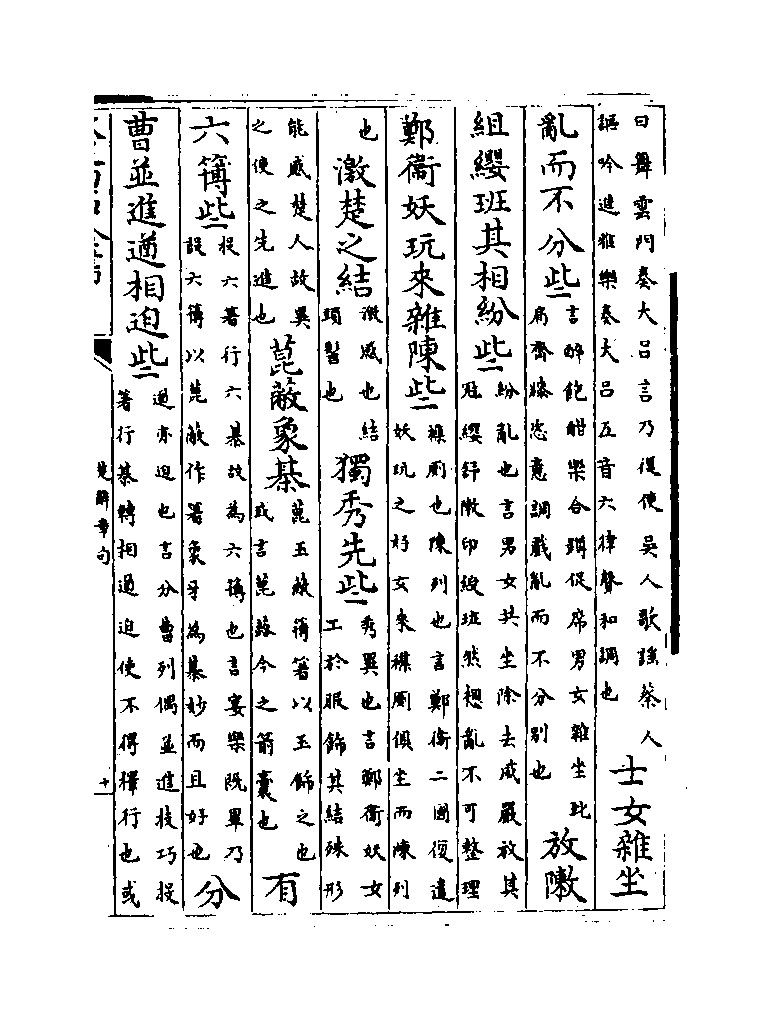 曰舞雲門奏大吕言乃復使吳人歌謡蔡人謳吟進雅樂奏大吕五音六律聲和調也士女雜坐
亂而不分些言醉飽酣樂合鐏促席男女雜坐比肩齊膝恣意調戲亂而不分别也放敶
組纓班其相紛些紛亂也言男女共坐除去威嚴放其冠纓舒敶印綬班然相亂不可整理
鄭衞妖玩來雜陳些襍厠也陳列也言鄭衞二國復遣妖玩之好女來襍厠俱坐而陳列
也激楚之結激感也結頭髻也獨秀先些秀異也言鄭衞妖女工於服飾其結殊形
能感楚人故異之使之先進也菎蔽象棊菎玉蔽簿箸以玉飾之也或言菎蕗今之箭囊也有
六簿些投六箸行六棊故為六簿也言宴樂既畢乃設六簿以菎蔽作箸象牙為棊妙而且好也分
曹並進遒相迫些遒亦迫也言分曹列偶並進技巧投箸行棊轉相遒迫使不得擇行也或
楚辭章句
十